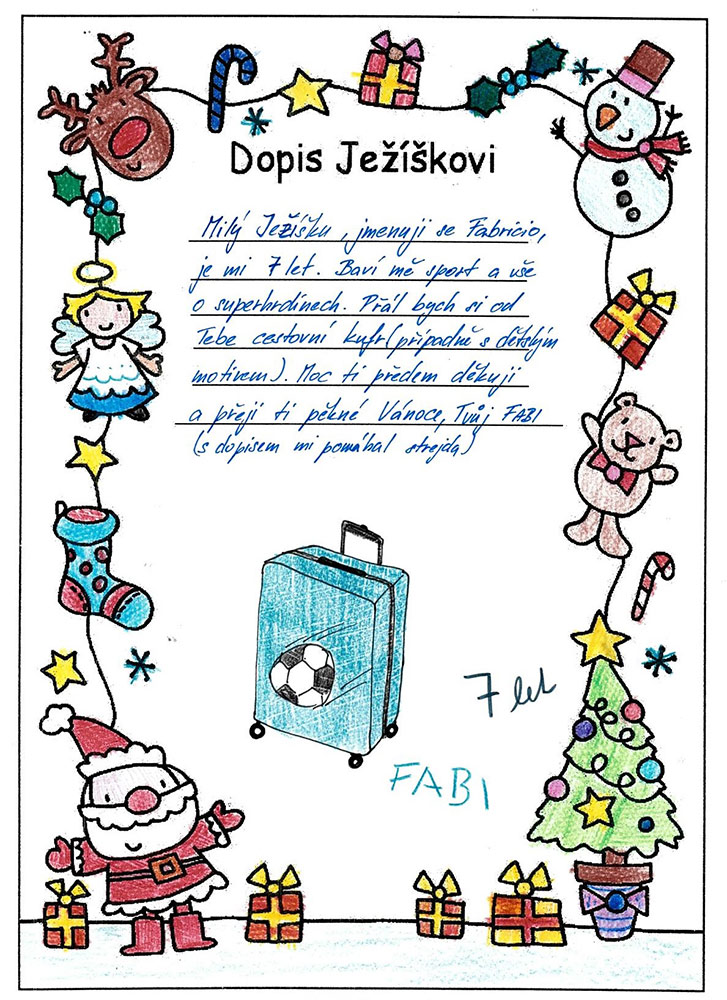 Dopis Ježíškovi
Milý Ježíšku, jmenuji se Fabricio,
je mi 7 let. Baví mě sport a vše
o superhrdinech. Přál bych si od
Tebe cestovní kufr (případně s dětským
motivem). Moc ti předem děkuji
a přeji ti pěkné Vánoce, Tvůj FABI
(s dopisem mi pomáhal strejda)
7 let
FABI